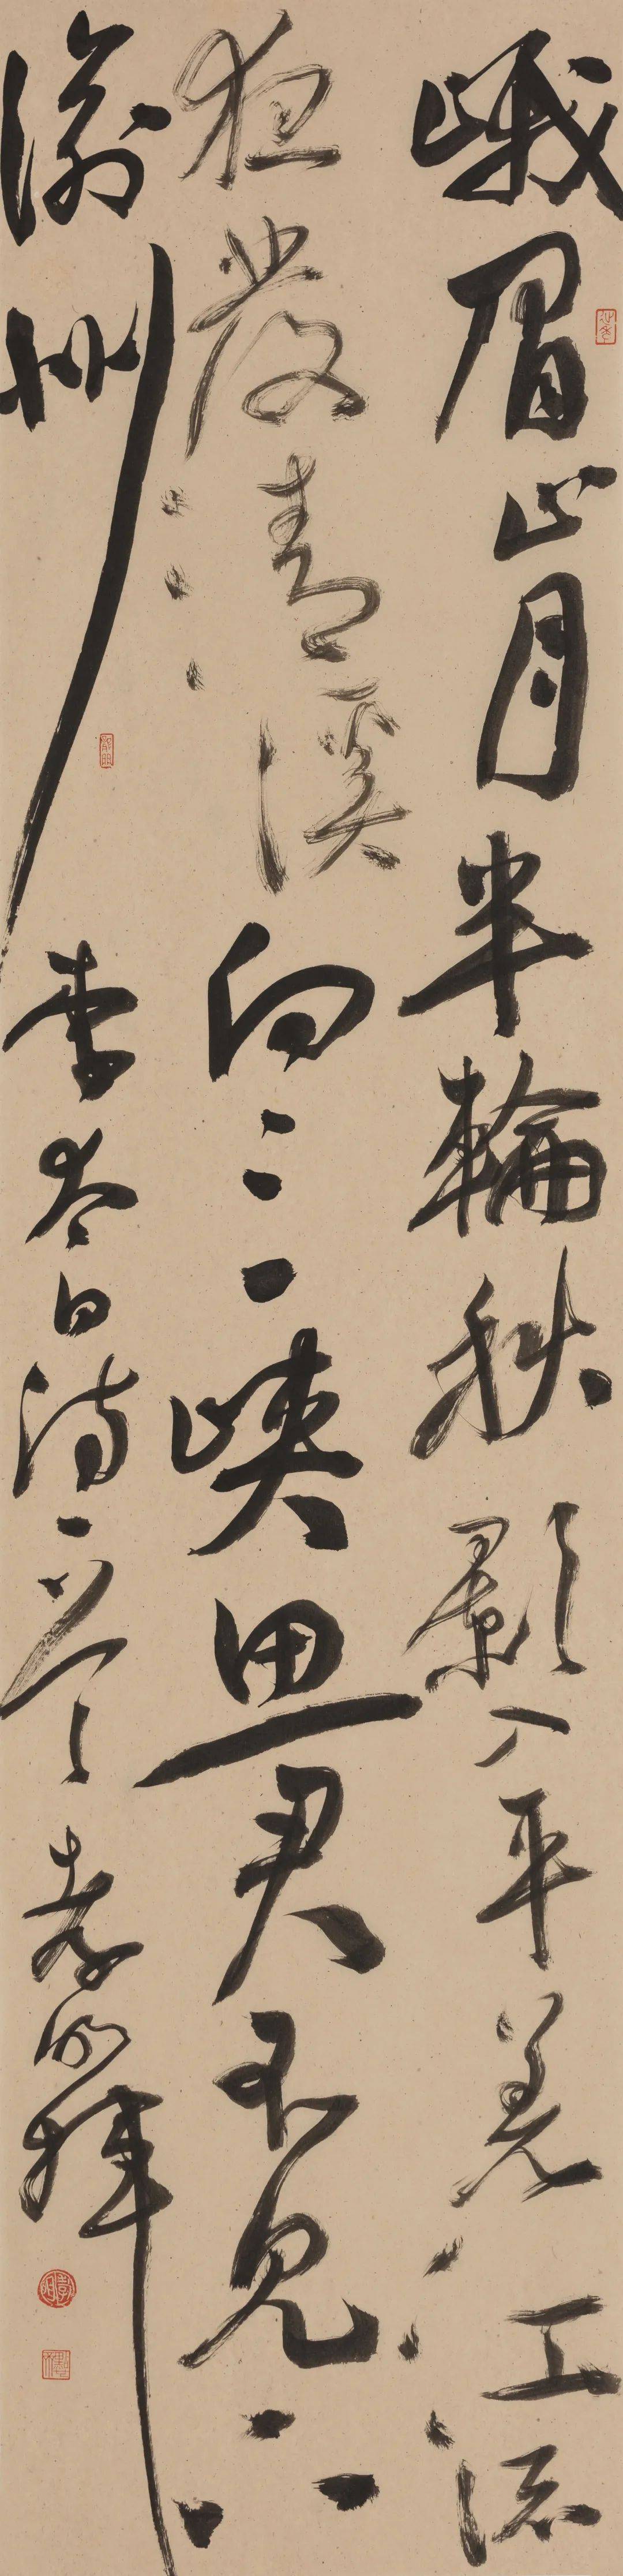 峨眉山月半輪秋影入平羌江流
夜發清溪向三峽思君不見下
渝州 李太白詩 孝明拜